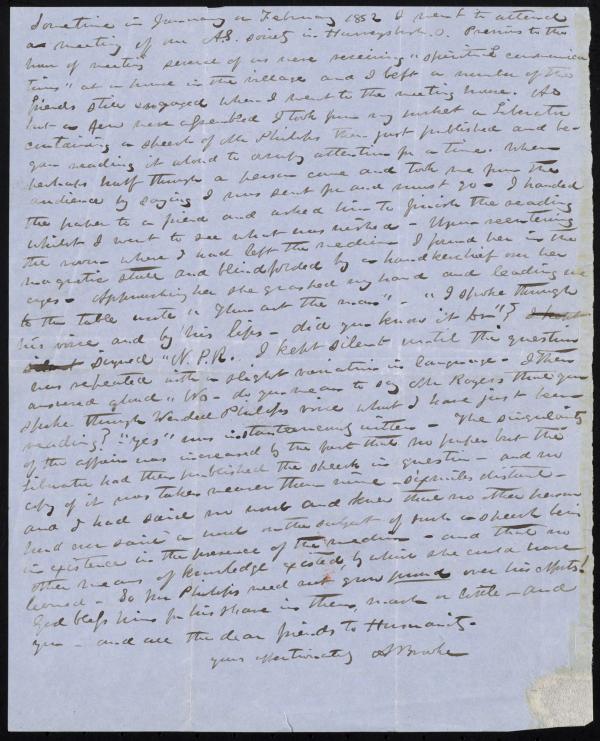 Sometime in January or February 1852 I went to attend
a meeting of our A.S. society in Harveysburgh. O. Previous to the
hour of meeting several of us were receiving "spiritual communica
tions" at a house in the village and I left a number of the
friends still engaged when I went to the meeting house. As
but a few were assembled I took from my pocket a Liberator
containing a speech of Mr Phillips then just published and be-
gan reading it aloud to occupy attention for a time. When
perhaps half through a person came and took me from the
audience by saying I was sent for and must go - I handed
the paper to a friend and asked him to finish the reading
whilst I went to see what was wished - Upon reentering
the room where I had left the medium I found her in the
magnetic state and blindfolded by a handkerchief over her
eyes - Approaching her she grasped my hand and leading me
to the table wrote "Thou art the man" - "I spoke through
his voice and by his lips - did you know it Dr"?
signed "N.P.R. I kept silent until the question
was repeated with a slight variation in language - I then
answered aloud "No - do you mean to say Mr Rogers that you
spoke through Wendell Phillips voice what I have just been
reading?" "Yes" was instantaneously written - The singularity
of the affair was increased by the fact that no paper but the
Liberator had then published the speech in question - and no
copy of it was taken nearer than mine - six miles distant -
and I had said no word and knew that no other person
had said a word on the subject of such a speech being
in existence in the presence of the medium - and that no
other means of knowledge existed, by which she could have
learned - So Mr Phillips need not grow proud over his efforts!
God bless him for his share in them, much or little - and
you - and all the dear friends to Humanity -
yours affectionately A Brooke